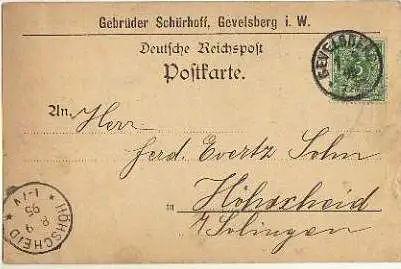 Gebrüder Schürhoff, Gevelsberg i. W.
Deutsche Reichspost
Postkarte.
GEVELSBERG
5
An Herr
Ferd. Evertz Sohn
in Höhscheid
b/Solingen
HÖHSCHEID
8 9
95
1-1V